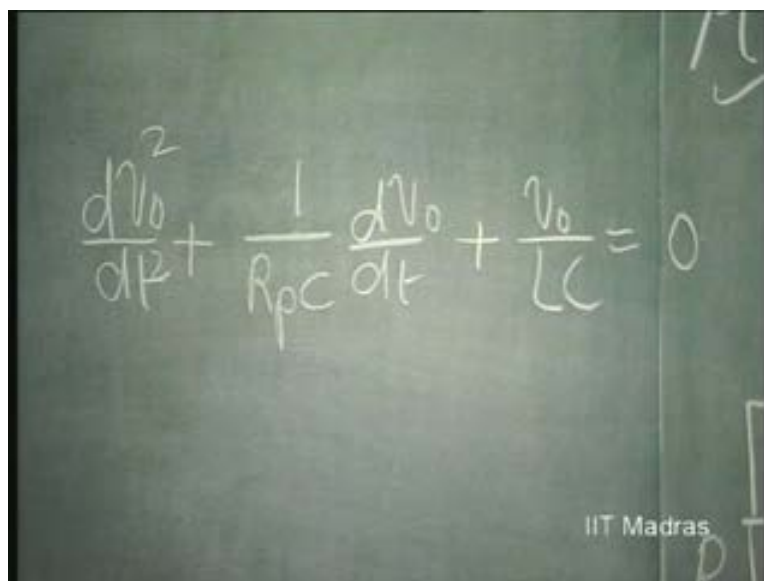 dV₀²/dt² + 1/RpC dV₀/dt + V₀/LC = 0
IIT Madras